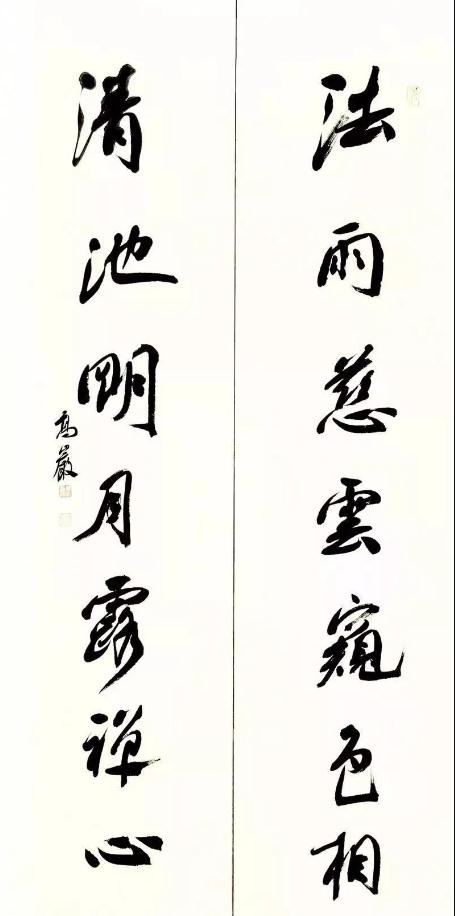 法雨慈雲窺色相
清池明月露禪心
高巖